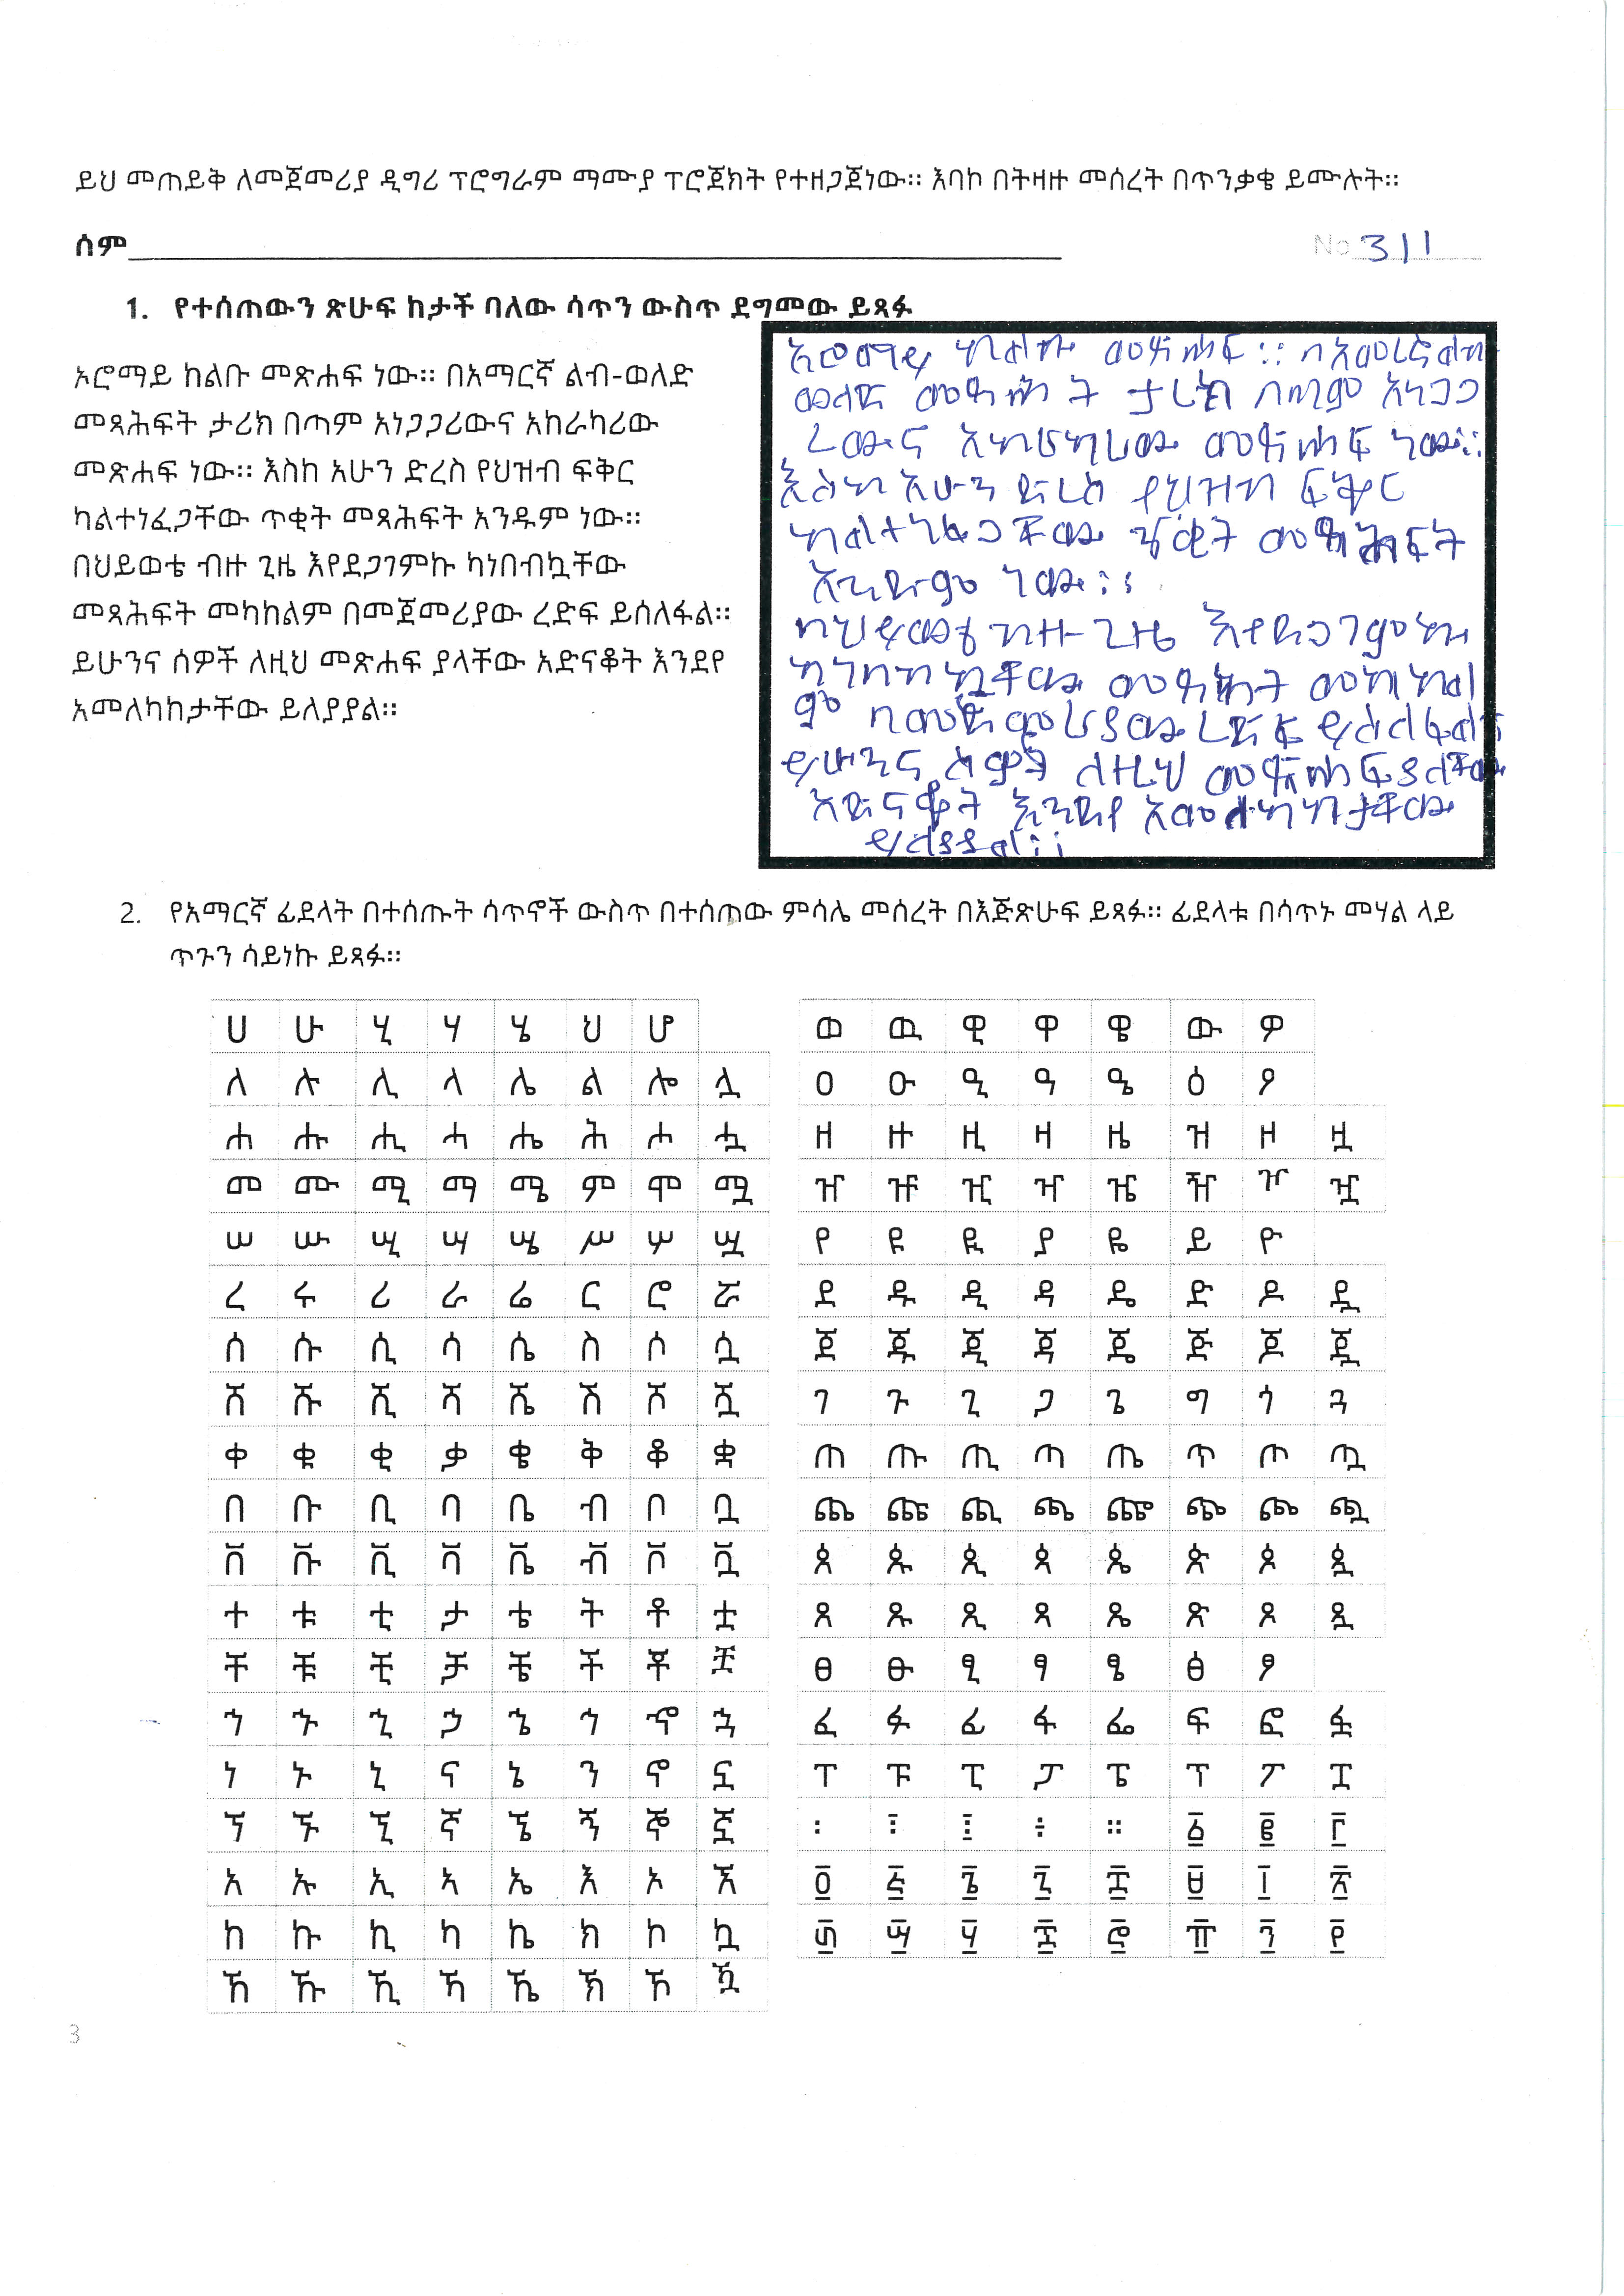 ይህ መጠይቅ ለመጀመሪያ ዲግሪ ፕሮግራም ማሙያ ፕሮጀክት የተዘጋጀነው። እባከ በትዛዙ መሰረት በጥንቃቄ ይሙሉት።
ሰም
No 311
1. የተሰጠውን ጽሁፍ ከታች ባለው ሳጥን ውስጥ ደግመው ይጻፉ
ኦሮማይ ከልቡ መጽሐፍ ነው። በአማርኛ ልብ-ወለድ
መጻሕፍት ታሪክ በጣም አነጋጋሪውና አከራካሪው
መጽሐፍ ነው። እስከ አሁን ድረስ የህዝብ ፍቅር
ካልተነፈጋቸው ጥቂት መጻሕፍት አንዱም ነው።
በህይወቴ ብዙ ጊዜ እየደጋገምኩ ካነበብኳቸው
መጻሕፍት መካከልም በመጀመሪያው ረድፍ ይሰለፋል።
ይሁንና ሰዎች ለዚህ መጽሐፍ ያላቸው አድናቆት እንደየ
አመለካከታቸው ይለያያል።
መጽሐፍ ። በአመረኛ ልብ
ወለድ ታሪክ በጣም አነጋጋ
ሪውና አከራካሪው መጽሐፍ ነው።
እስከ አሁን ድረስ የህዝብ ፍቅር
ካልተነፈጋቸው ጥቂት መጻሕፍት
አንዱም ነው።
በህይወቴ ብዙ ጊዜ እየደጋገምኩ
ካነበብኳቸው መካከል
ም በመጀመሪያው ረድፍ ይሰለፋል።
ይሁንና ሰዎች ለዚህ መጽሐፍ ያላቸው
አድናቆት እንደየ አመለካከታቸው
ይለያያል።
2. የአማርኛ ፊደላት በተሰጡት ሳጥኖች ውስጥ በተሰጠው ምሳሌ መሰረት በእጅጽሁፍ ይጻፉ። ፊደላቱ በሳጥኑ መሃል ላይ
ጥጉን ሳይነኩ ይጻፉ።
ሀ ሁ ሂ ሃ ሄ ህ ሆ
ለ ሉ ሊ ላ ሌ ል ሎ ሏ
ሐ ሑ ሒ ሓ ሔ ሕ ሖ ሗ
መ ሙ ሚ ማ ሜ ም ሞ ሟ
ሠ ሡ ሢ ሣ ሤ ሥ ሦ ሧ
ረ ሩ ሪ ራ ሬ ር ሮ ሯ
ሰ ሱ ሲ ሳ ሴ ስ ሶ ሷ
ሸ ሹ ሺ ሻ ሼ ሽ ሾ ሿ
ቀ ቁ ቂ ቃ ቄ ቅ ቆ ቋ
በ ቡ ቢ ባ ቤ ብ ቦ ቧ
ቨ ቩ ቪ ቫ ቬ ቭ ቮ ቯ
ተ ቱ ቲ ታ ቴ ት ቶ ቷ
ቸ ቹ ቺ ቻ ቼ ች ቾ ቿ
ኀ ኁ ኂ ኃ ኄ ኅ ኆ ኋ
ነ ኑ ኒ ና ኔ ን ኖ ኗ
ኘ ኙ ኚ ኛ ኜ ኝ ኞ ኟ
አ ኡ ኢ ኣ ኤ እ ኦ ኧ
ከ ኩ ኪ ካ ኬ ክ ኮ ኳ
ኸ ኹ ኺ ኻ ኼ ኽ ኾ ዃ
ወ ዉ ዊ ዋ ዌ ው ዎ
ዐ ዑ ዒ ዓ ዔ ዕ ዖ
ዘ ዙ ዚ ዛ ዜ ዝ ዞ ዟ
ዠ ዡ ዢ ዣ ዤ ዥ ዦ ዧ
የ ዩ ዪ ያ ዬ ይ ዮ
ደ ዱ ዲ ዳ ዴ ድ ዶ ዷ
ጀ ጁ ጂ ጃ ጄ ጅ ጆ ጇ
ገ ጉ ጊ ጋ ጌ ግ ጎ ጓ
ጠ ጡ ጢ ጣ ጤ ጥ ጦ ጧ
ጨ ጩ ጪ ጫ ጬ ጭ ጮ ጯ
ጰ ጱ ጲ ጳ ጴ ጵ ጶ ጷ
ጸ ጹ ጺ ጻ ጼ ጽ ጾ ጿ
ፀ ፁ ፂ ፃ ፄ ፅ ፆ
ፈ ፉ ፊ ፋ ፌ ፍ ፎ ፏ
ፐ ፑ ፒ ፓ ፔ ፕ ፖ ፗ
፡ ፤ ፥ ። ፩ ፪ ፫
፬ ፭ ፮ ፯ ፰ ፱ ፲ ፳
፴ ፵ ፶ ፷ ፸ ፹ ፺ ፻
3